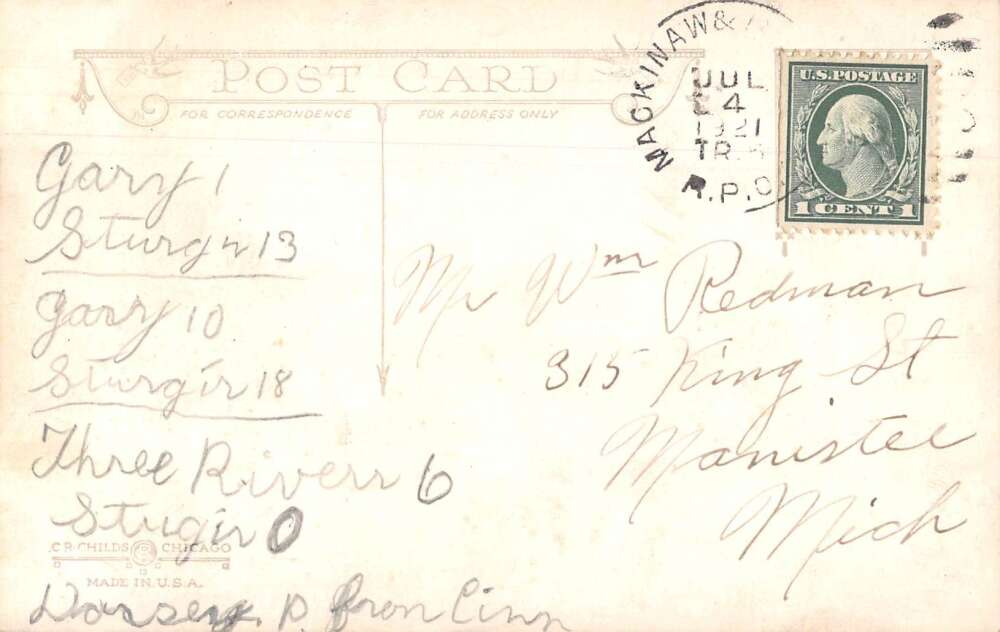 POST CARD
FOR CORRESPONDENCE
FOR ADDRESS ONLY
MACKINAW &
JUL
4
1921
TR.
R.P.O.
U.S. POSTAGE
1 CENT 1
Gary 1
Sturgir 13
Gary 10
Sturgir 18
Three Rivers 6
Stugir 0
Dorsey p from Cinn
Mr Wm Redman
315 King St
Manistee
Mich
C.R. CHILDS CHICAGO
MADE IN U.S.A.